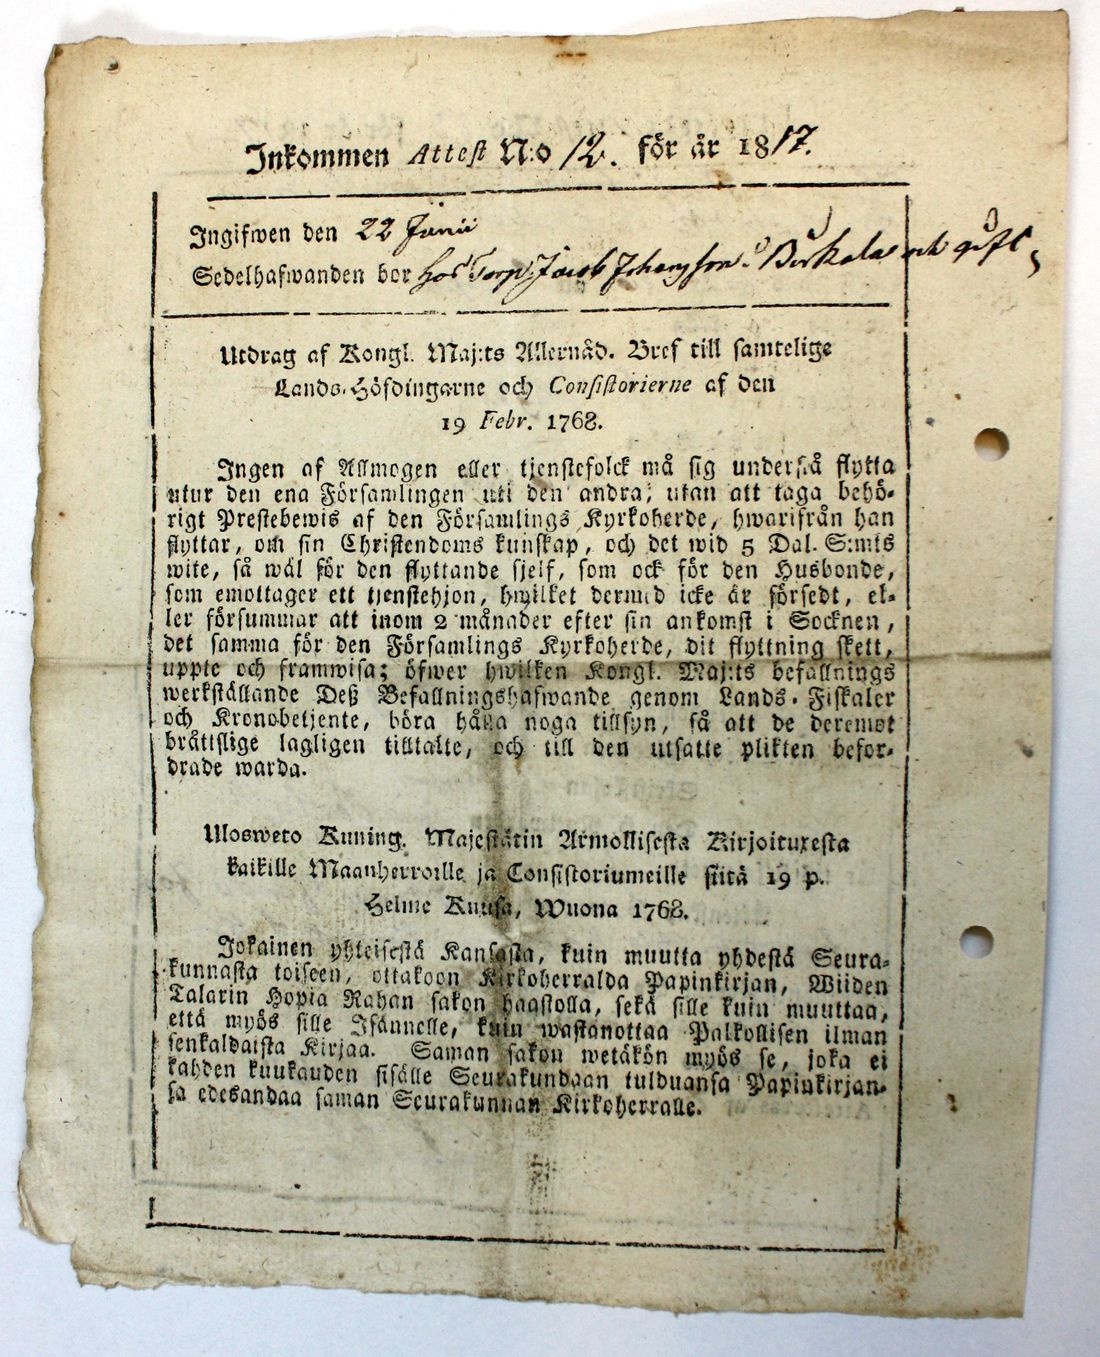 Inkommen Attest N:o 12. för år 1817.
Ingifwen den 22 Junii
Sedelhafwanden bor hos Torp. Jacob Johansson i Birkala och gift,
Utdrag af Kongl. Maj:ts Allernåd. Bref till samtelige
Lands-Höfdingarne och Consistorierne af den
19 Febr. 1768.
Ingen af Allmogen eller tjenstefolck må sig understå flytta
utur den ena Församlingen uti den andra, utan att taga behö-
rigt Prestebewis af den Församlings Kyrkoherde, hwarifrån han
flyttar, om sin Christendoms kunskap, och det wid 5 Dal. S:mts
wite, så wäl för den flyttande sjelf, som ock för den Husbonde,
som emottager ett tjenstehjon, hwilket dermed icke är försedt, el-
ler försummar att inom 2 månader efter sin ankomst i Socknen,
det samma för den Församlings Kyrkoherde, dit flyttning skett,
uppte och framwisa; öfwer hwilken Kongl. Maj:ts befallnings
werkställande Deß Befallningshafwande genom Lands-Fiskaler
och Kronobetjente, böra hålla noga tillsyn, så att de deremot
bråttslige lagligen tilltalte, och till den utsatte plikten befor-
drade warda.
Ulosweto Kuning. Majestätin Armollisesta Kirjoituxesta
kaikille Maanherroille ja Consistoriumeille siitä 19 p.
Helme Kuusa, Wuona 1768.
Jokainen yhteisestä Kansasta, kuin muutta yhdestä Seura-
kunnasta toiseen, ottakoon Kirkoherralda Papinkirjan, Wiiden
Talarin Hopia Rahan sakon haastolla, sekä sille kuin muuttaa,
että myös sille Isännelle, kuin wastanottaa Palkollisen ilman
senkaldaista Kirjaa. Saman sakon wetäkön myös se, joka ei
kahden kuukauden sisälle Seurakundaan tulduansa Papinkirjan-
sa edesandaa saman Seurakunnan Kirkoherralle.